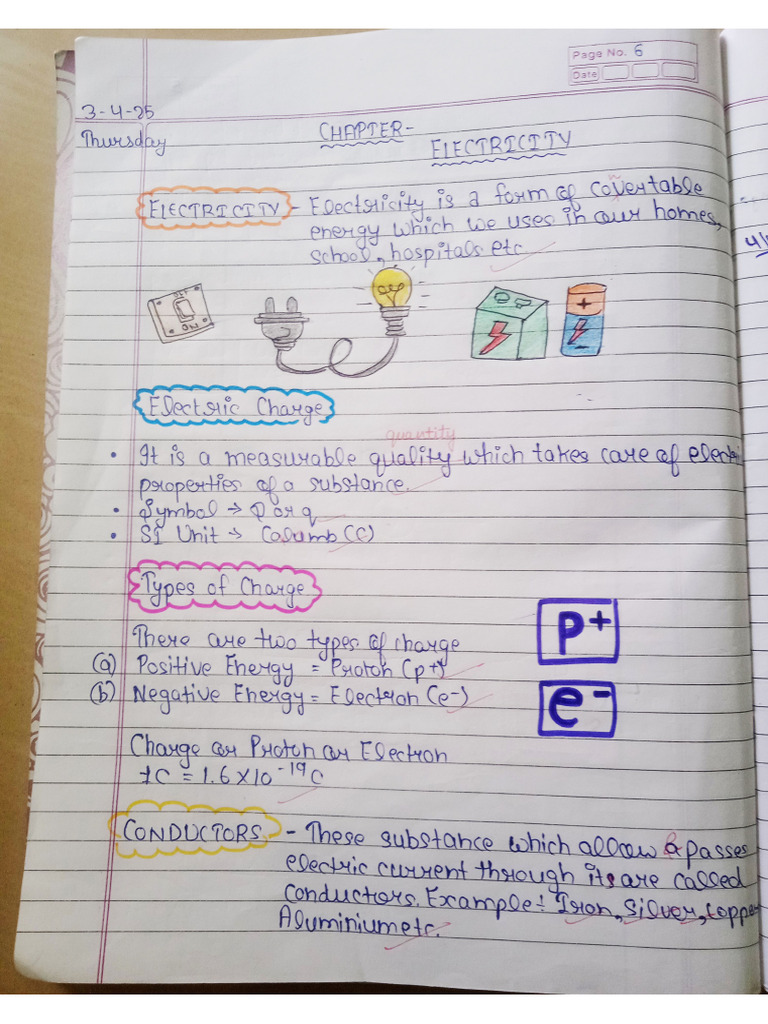 Page No. 6
Date
3-4-25
Thursday
CHAPTER-
ELECTRICITY
ELECTRICITY - Electricity is a form of covertable
energy which we uses in our homes,
school, hospitals etc
OFF
ON
+
-
Electric Charge
quantity
• It is a measurable quality which takes care of electri
properties of a substance.
• Symbol → Q or q
• SI Unit → Columb (C)
Types of Charge
There are two types of charge
(a) Positive Energy = Proton (p+)
(b) Negative Energy = Electron (e-)
P+
e-
Charge or Proton or Electron
1C = 1.6 X 10^-19 C
CONDUCTORS - These substance which allow passes
electric current through its are called
conductors. Example:- Iron, Silver, copper
Aluminium etc.